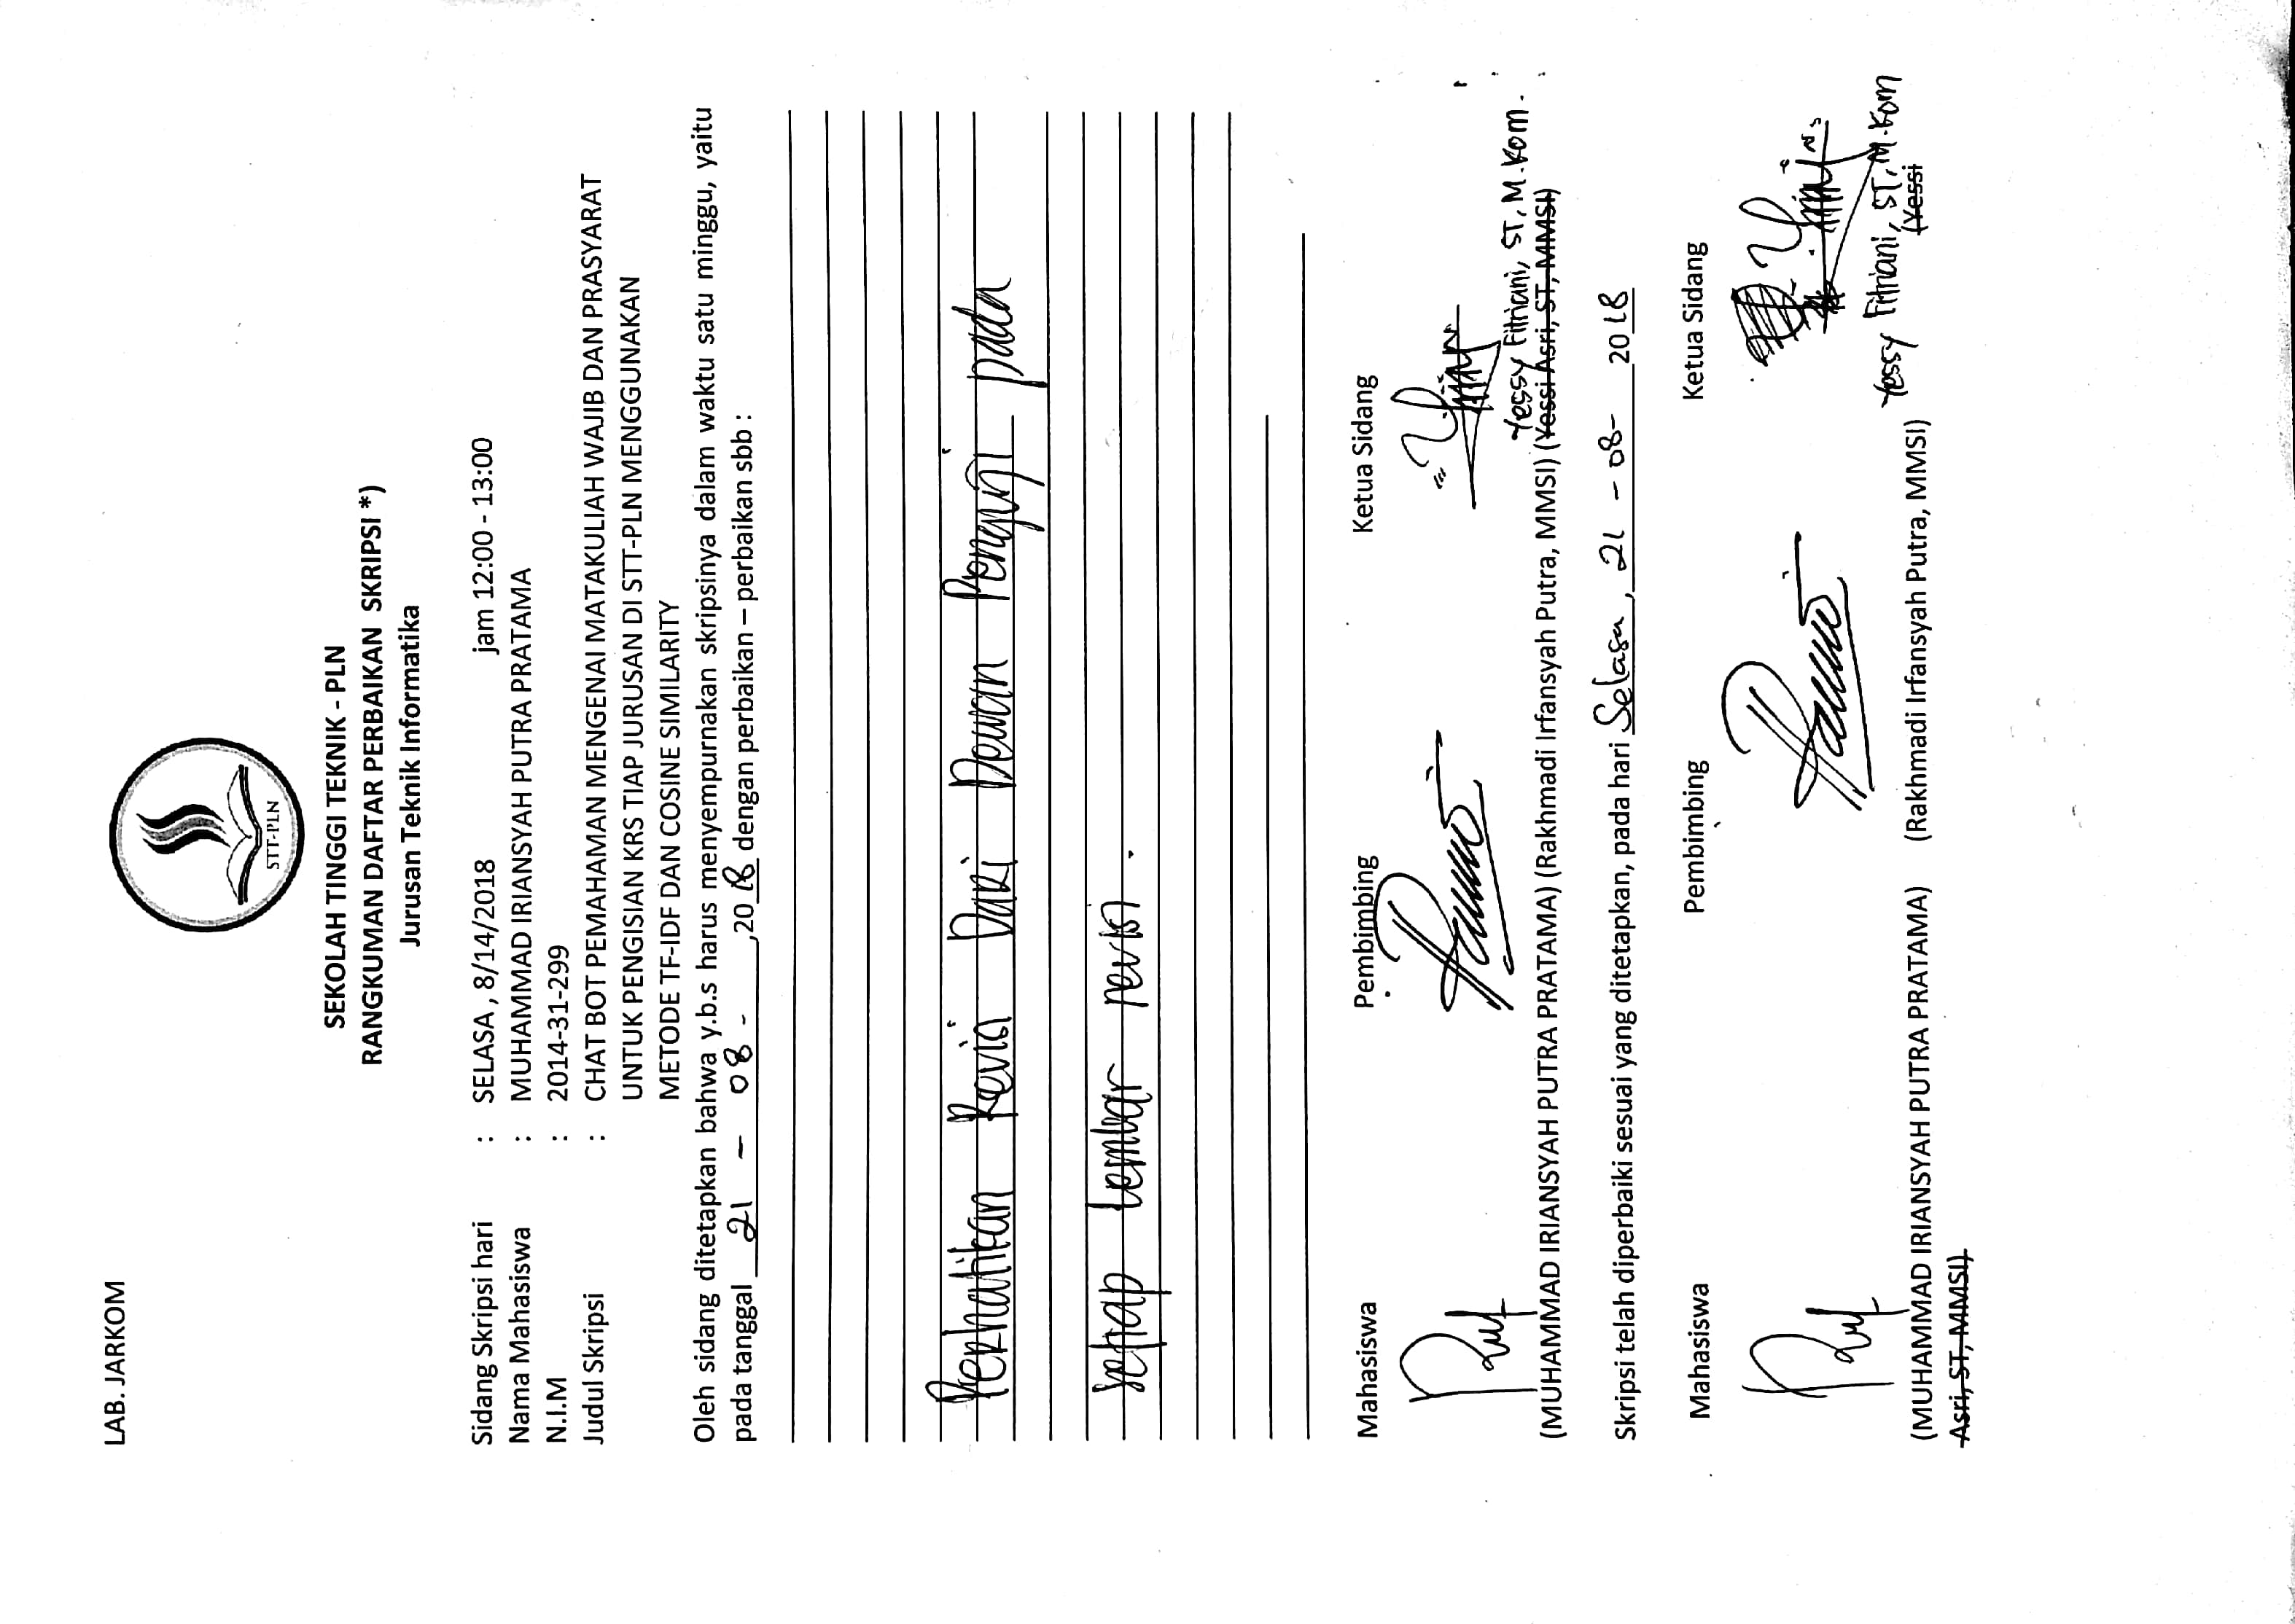 LAB. JARKOM
STT-PLN
SEKOLAH TINGGI TEKNIK - PLN
RANGKUMAN DAFTAR PERBAIKAN SKRIPSI *)
Jurusan Teknik Informatika
Sidang Skripsi hari : SELASA , 8/14/2018 jam 12:00 - 13:00
Nama Mahasiswa : MUHAMMAD IRIANSYAH PUTRA PRATAMA
N.I.M : 2014-31-299
Judul Skripsi : CHAT BOT PEMAHAMAN MENGENAI MATAKULIAH WAJIB DAN PRASYARAT
UNTUK PENGISIAN KRS TIAP JURUSAN DI STT-PLN MENGGUNAKAN
METODE TF-IDF DAN COSINE SIMILARITY
Oleh sidang ditetapkan bahwa y.b.s harus menyempurnakan skripsinya dalam waktu satu minggu, yaitu
pada tanggal 21 - 08 - ,20 18 dengan perbaikan – perbaikan sbb :
Perhatikan Revisi Dari Dewan Penguji pada
setiap lembar revisi .
Mahasiswa Pembimbing Ketua Sidang
Yessy Fitriani, ST, M.Kom.
(MUHAMMAD IRIANSYAH PUTRA PRATAMA) (Rakhmadi Irfansyah Putra, MMSI) (Yessi Asri, ST, MMSI)
Skripsi telah diperbaiki sesuai yang ditetapkan, pada hari Selasa , 21 - 08 - 20 18
Mahasiswa Pembimbing Ketua Sidang
Yessy Fitriani, ST, M.Kom
(MUHAMMAD IRIANSYAH PUTRA PRATAMA) (Rakhmadi Irfansyah Putra, MMSI) (Yessi
Asri, ST, MMSI)